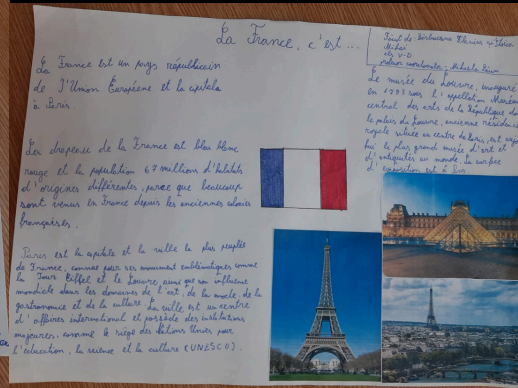 La France, c'est ...
La France est un pays républicain
de l'Union Européene et la capitala
à Paris.
Les drapeau de la France est blau blanc
rouge et la population 67 millions d'habitats
d'origines différentes, parce que beaucoup
sont venus en France depuis les anciennes colonies
françaises.
Paris est la capitale et la ville la plus peuplée
de France, connue pour ses monument emblématiques comme
la Tour Eiffel et le Louvre, ainsi que son influence
mondiale dans les domaines de l'art, de la mode, de la
gastronomie et de la culture. La ville est un centre
d'affaires international et possède des institutions
majeures, comme le siège des Nations Unies pour
l'éducation, la science et la culture (UNESCO).
Mihai
cls V-D
Le musée du Louvre, inauguré
en 1793 sous l'appellation Muséum
central des arts de la République dans
le palais du Louvre, ancienne résidence
royale située au centre de Paris, est
hui le plus grand musée d'art et
d'antiquités au monde. Sa
d'exposition est